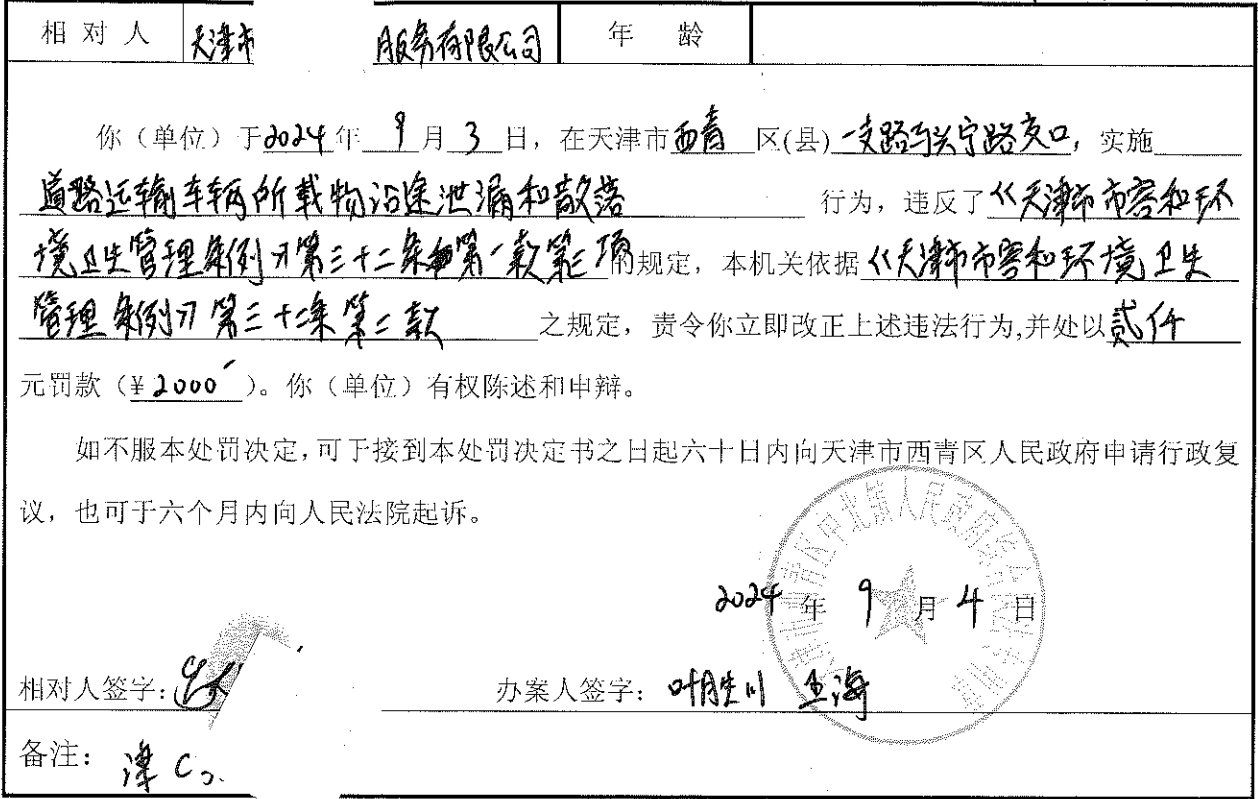 相对人 天津市 服务有限公司 年龄
你（单位）于2024年9月3日，在天津市西青区(县)一支路与兴宁路交口，实施
道路运输车辆所载物沿途泄漏和散落 行为，违反了《天津市市容和环
境卫生管理条例》第三十二条第一款第三项的规定，本机关依据《天津市市容和环境卫生
管理条例》第三十二条第二款 之规定，责令你立即改正上述违法行为,并处以贰仟
元罚款（¥2000）。你（单位）有权陈述和申辩。
如不服本处罚决定，可于接到本处罚决定书之日起六十日内向天津市西青区人民政府申请行政复
议，也可于六个月内向人民法院起诉。
2024年9月4日
相对人签字： 办案人签字：叶胜川 王海
备注：津C